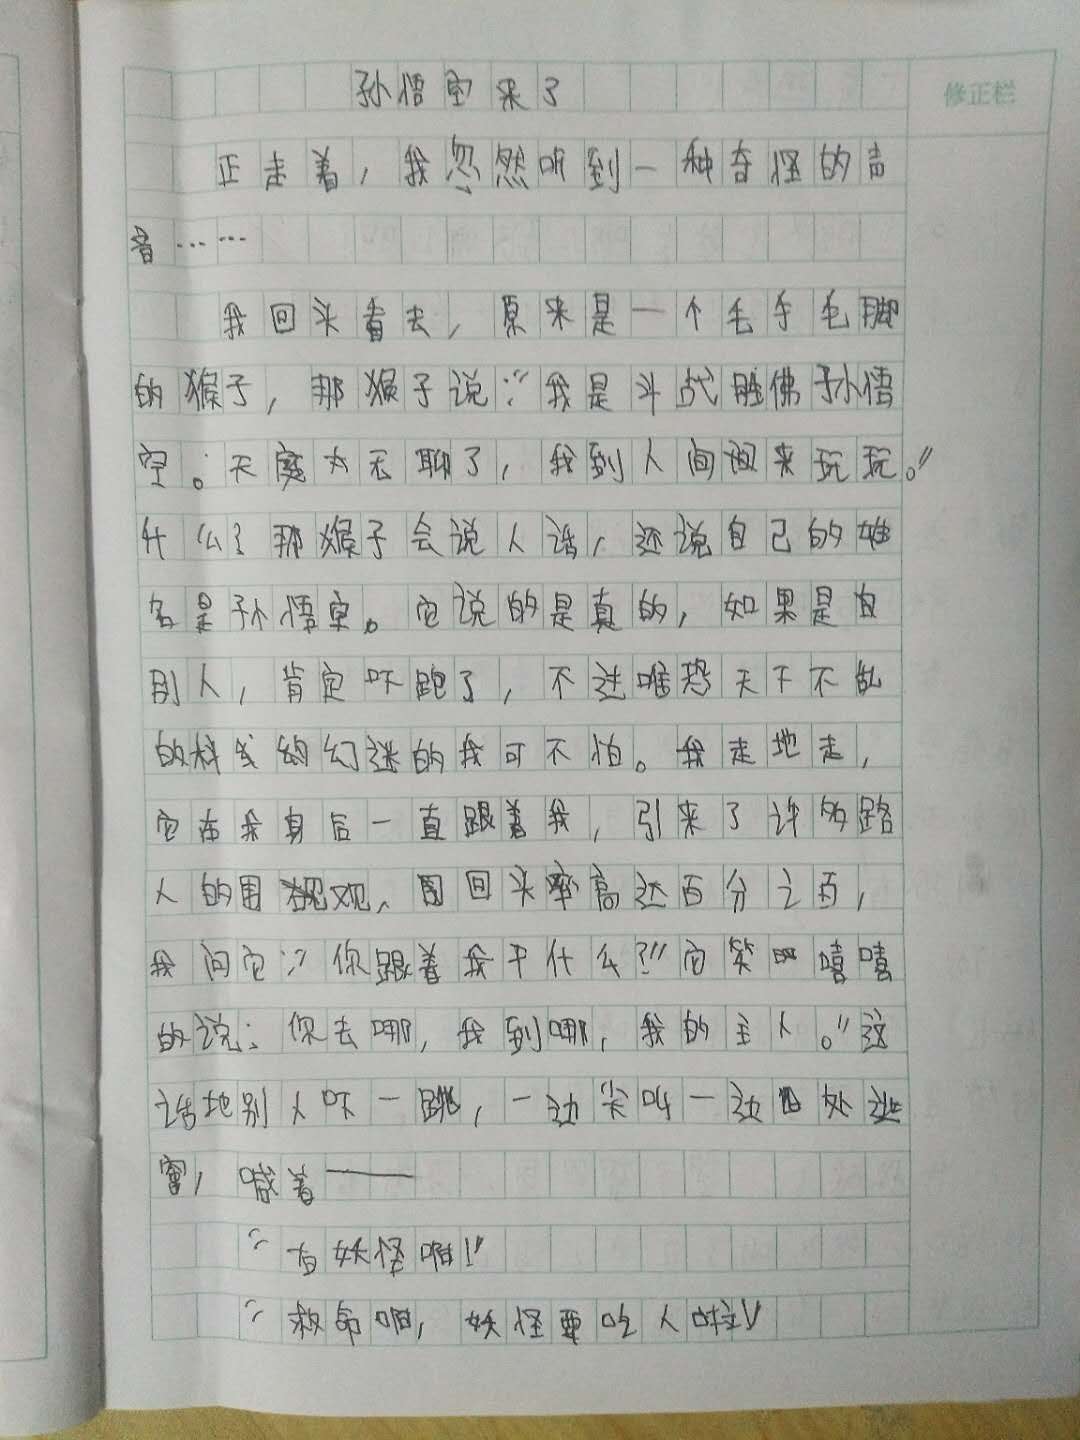 孙悟空来了
修正栏
正走着，我忽然听到一种奇怪的声
音……
我回头看去，原来是一个毛手毛脚
的猴子，那猴子说：“我是斗战胜佛孙悟
空。天庭太无聊了，我到人间来玩玩。”
什么？那猴子会说人话，还说自己的
名是孙悟空。它说的是真的，如果是
别人，肯定吓跑了，不过唯恐天下不乱
的科幻迷的我可不怕。我走地走，
它在我身后一直跟着我，引来了许多路
人的围观，回头率高达百分之百，
我问它：“你跟着我干什么？”它笑嘻嘻
的说：你去哪，我到哪，我的主人。”这
话地别人吓一跳，一边尖叫一边四处逃
窜，喊着——
“有妖怪啊！”
“救命啊，妖怪要吃人啦！”